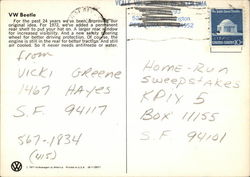 VW Beetle
For the past 24 years we've been improving our
original idea. For 1973, we've added a permanent
new shelf to put your hat on. A larger rear window
for increased visibility. And a new safety steering
wheel for better driving protection. Of course, the
engine is still in the rear for better traction. And still
air cooled. So it never needs antifreeze or water.
from
VICKI GREENE
1467 HAYES
S.F. 94117
567-1834
(415)
HOME-RUN
SWEEPSTAKES
KDIY 5
BOX 11155
S.F. 94101